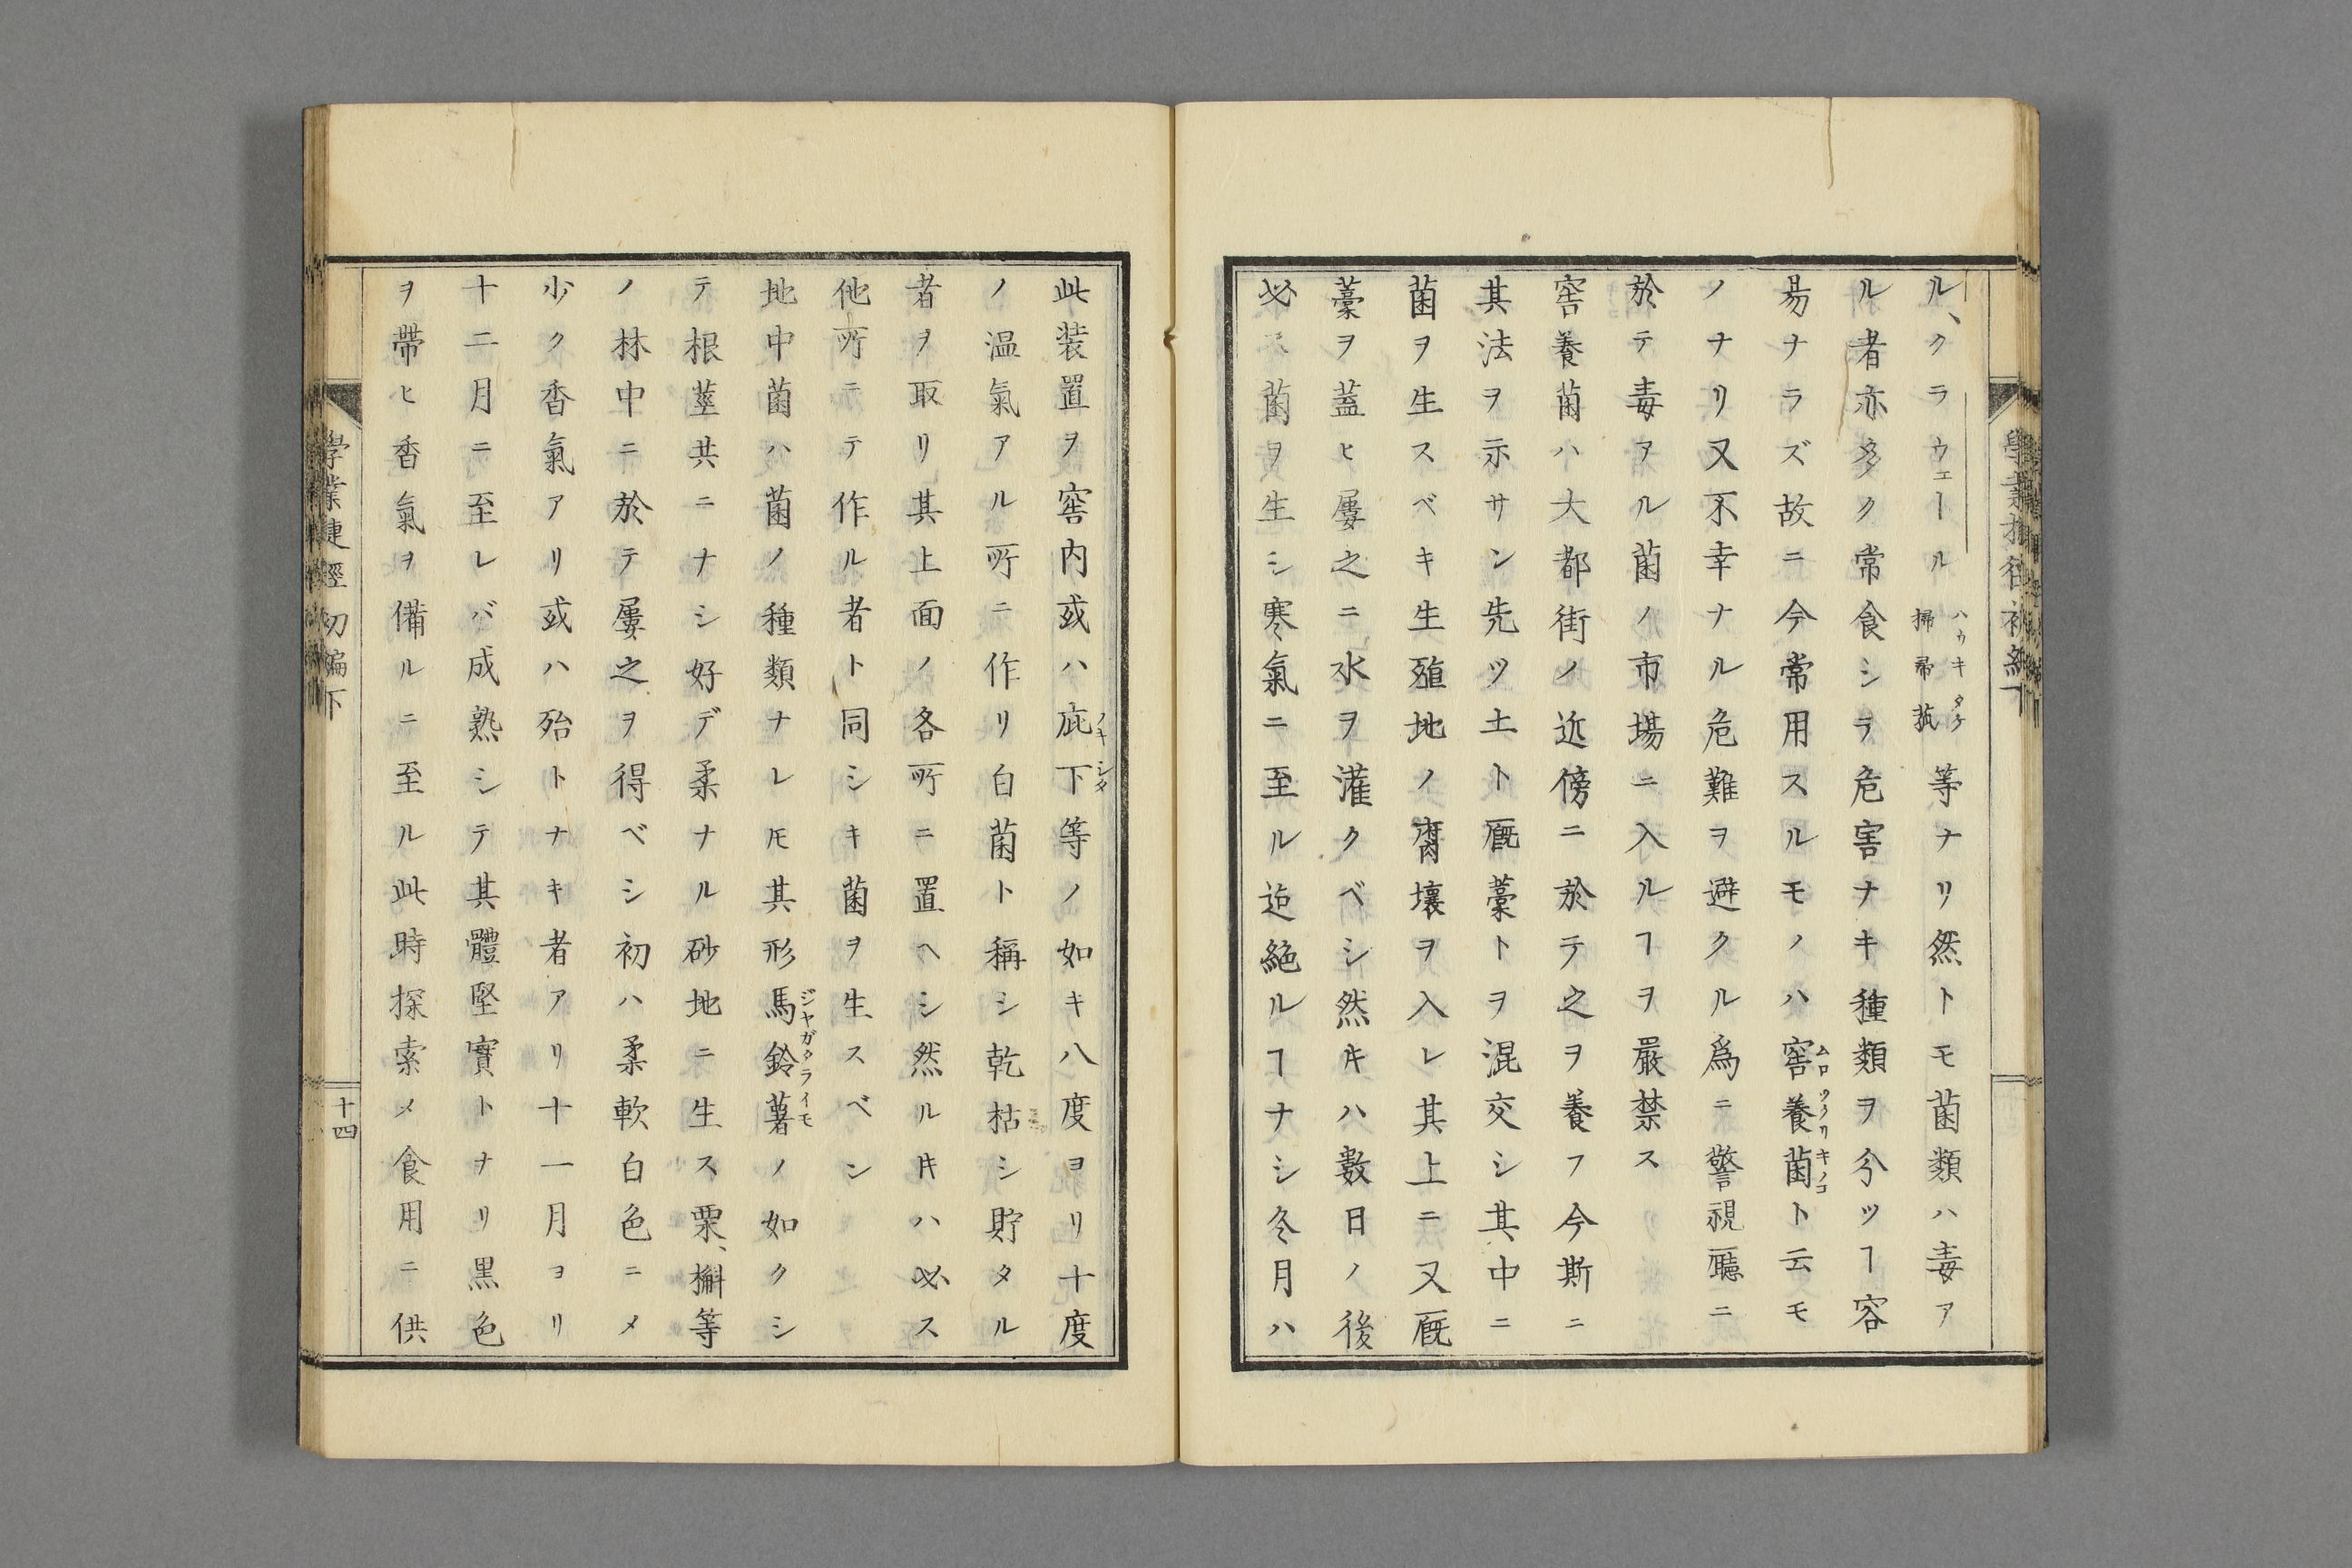 ル、クラウェール掃帚菰等ナリ然トモ菌類ハ毒ア
ハウキタケ
ル者亦タ多ク常食シラ危害ナキ種類ヲ分ツヿ容
易ナラズ故ニ今常用スルモノハ窖養菌ト云モ
ムロヅクリキノコ
ノナリ又不幸ナル危難ヲ避クル爲ニ警視廳ニ
於テ毒アル菌ノ市場ニ入ルヿヲ嚴禁ス
窖養菌ハ大都街ノ近傍ニ於テ之ヲ養フ今斯ニ
其法ヲ示サン先ツ土ト厩藁トヲ混交シ其中ニ
菌ヲ生スベキ生殖地ノ腐壞ヲ入レ其上ニ又厩
藁ヲ蓋ヒ屢之ニ水ヲ灌クベシ然ルキハ數日ノ後
必ス菌ヲ生シ寒氣ニ至ル迄絶ルヿナシ冬月ハ
此装置ヲ窖内或ハ庇下等ノ如キ八度ヨリ十度
ノキシタ
ノ温氣アル所ニ作リ白菌ト稱シ乾枯シ貯タル
者ヲ取リ其上面ノ各所ニ置ヘシ然ルキハ必ス
他所ニテ作ル者ト同シキ菌ヲ生スベン
地中菌ハ菌ノ種類ナレ𪜈其形馬鈴薯ノ如クシ
ジヤガタライモ
テ根莖共ニナシ好デ柔ナル砂地ニ生ス栗、槲等
ノ林中ニ於テ屢之ヲ得ベシ初ハ柔軟白色ニメ
少ク香氣アリ或ハ殆トナキ者アリ十一月ヨリ
十二月ニ至レバ成熟シテ其體堅實トナリ黒色
ヲ帶ヒ香氣ヲ備ルニ至ル此時探索メ食用ニ供
學業捷徑初編下
十四